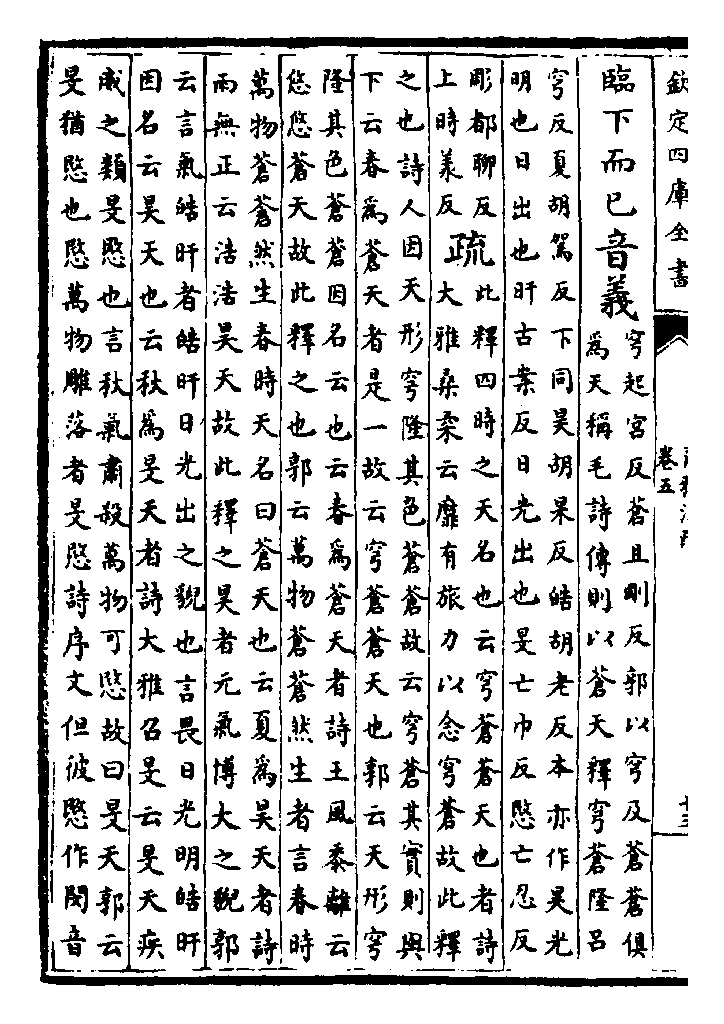 欽定四庫全書
卷五
臨下而已音義
穹起宮反蒼且剛反郭以穹及蒼蒼俱
為天稱毛詩傳則以蒼天釋穹蒼隆呂
穹反夏胡駕反下同昊胡杲反皓胡老反本亦作昊光
明也日出也旰古案反日光出也旻亡巾反愍亡忍反
彫都聊反
上時羕反
疏
此釋四時之天名也云穹蒼蒼天也者詩
大雅桑柔云靡有旅力以念穹蒼故此釋
之也詩人因天形穹隆其色蒼蒼故云穹蒼其實則與
下云春為蒼天者是一故云穹蒼蒼天也郭云天形穹
隆其色蒼蒼因名云也云春為蒼天者詩王風黍離云
悠悠蒼天故此釋之也郭云萬物蒼蒼然生者言春時
萬物蒼蒼然生春時天名曰蒼天也云夏為昊天者詩
雨無正云浩浩昊天故此釋之昊者元氣博大之貌郭
云言氣皓旰者皓旰日光出之貌也言畏日光明皓旰
因名云昊天也云秋為旻天者詩大雅召旻云旻天疾
威之類旻愍也言秋氣肅殺萬物可愍故曰旻天郭云
旻猶愍也愍萬物雕落者旻愍詩序文但彼愍作閔音